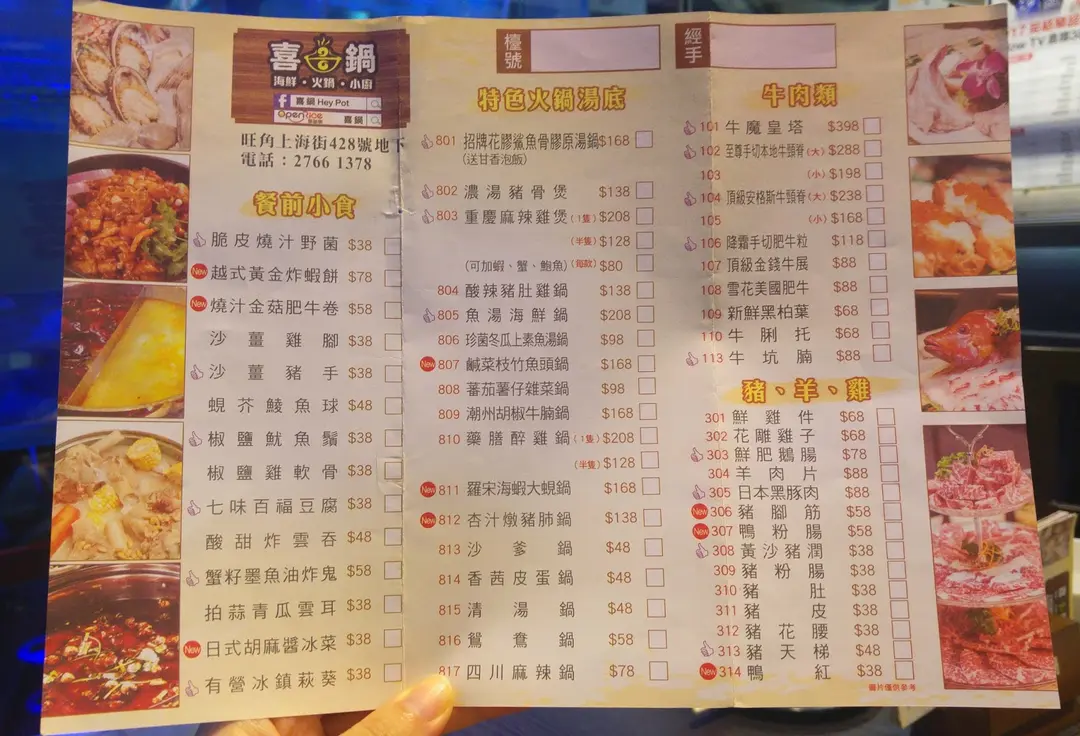 喜鍋
海鮮・火鍋・小廚
f 喜鍋 Hey Pot
OpenRice 喜鍋
旺角上海街428號地下
電話：2766 1378
餐前小食
脆皮燒汁野菌 $38
New 越式黃金炸蝦餅 $78
New 燒汁金菇肥牛卷 $58
沙薑雞腳 $38
沙薑豬手 $38
蜆芥鯪魚球 $48
椒鹽魷魚鬚 $38
椒鹽雞軟骨 $38
七味百福豆腐 $38
酸甜炸雲吞 $48
蟹籽墨魚油炸鬼 $58
拍蒜青瓜雲耳 $38
New 日式胡麻醬冰菜 $38
有營冰鎮萩葵 $38
檯號
特色火鍋湯底
801 招牌花膠鯊魚骨膠原湯鍋 $168
(送甘香泡飯)
802 濃湯豬骨煲 $138
803 重慶麻辣雞煲 (1隻) $208
(半隻) $128
(可加蝦、蟹、鮑魚) (每款) $80
804 酸辣豬肚雞鍋 $138
805 魚湯海鮮鍋 $208
806 珍菌冬瓜上素魚湯鍋 $98
New 807 鹹菜枝竹魚頭鍋 $168
808 蕃茄薯仔雜菜鍋 $98
809 潮州胡椒牛腩鍋 $168
810 藥膳醉雞鍋 (1隻) $208
(半隻) $128
New 811 羅宋海蝦大蜆鍋 $168
New 812 杏汁燉豬肺鍋 $138
813 沙爹鍋 $48
814 香茜皮蛋鍋 $48
815 清湯鍋 $48
816 鴛鴦鍋 $58
817 四川麻辣鍋 $78
經手
牛肉類
101 牛魔皇塔 $398
102 至尊手切本地牛頸脊 (大) $288
103 (小) $198
104 頂級安格斯牛頸脊 (大) $238
105 (小) $168
106 降霜手切肥牛粒 $118
107 頂級金錢牛展 $88
108 雪花美國肥牛 $88
109 新鮮黑柏葉 $68
110 牛脷托 $68
113 牛坑腩 $88
豬、羊、雞
301 鮮雞件 $68
302 花雕雞子 $68
303 鮮肥鵝腸 $78
304 羊肉片 $88
305 日本黑豚肉 $88
New 306 豬腳筋 $58
New 307 鴨粉腸 $58
308 黃沙豬潤 $38
309 豬粉腸 $38
310 豬肚 $38
311 豬皮 $38
312 豬花腰 $38
313 豬天梯 $48
New 314 鴨紅 $38
圖片僅供參考